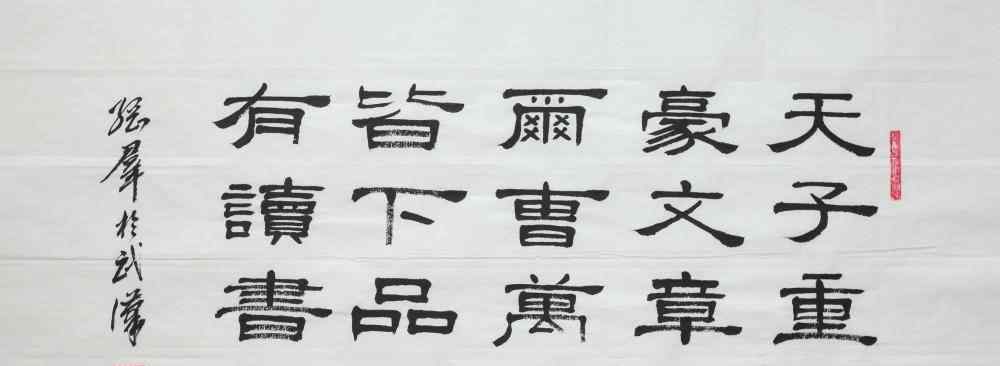 天子重
豪文章
爾曹萬
皆下品
有讀書
羣於武漢